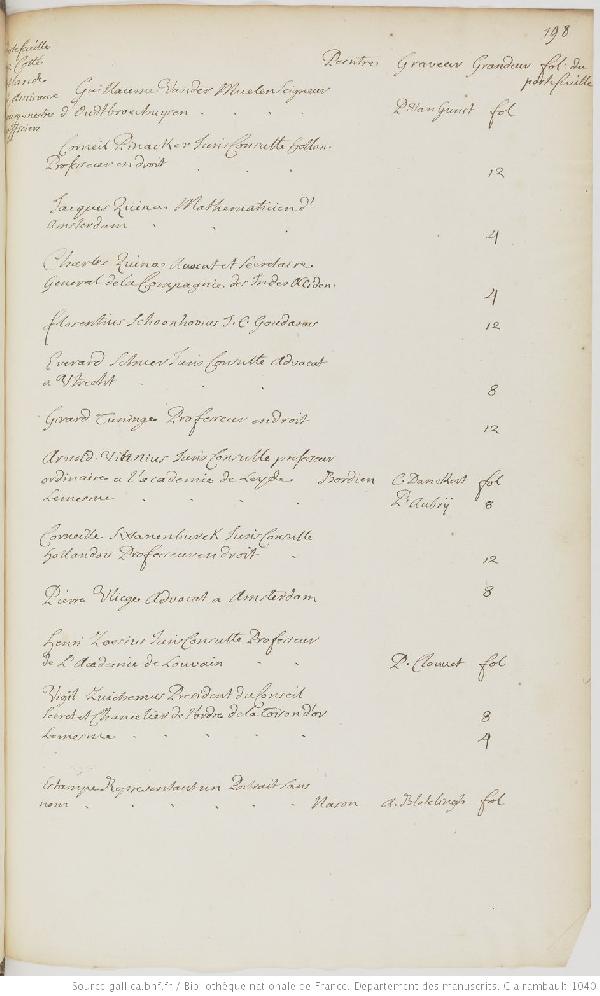 198
Peintre Graveur Grandeur fol. du
portefeuille
Guillaume Vander Muelen Seigneur
d'Oudtbroekuysen P. Van Gunst fol
Corneil Pynacker Juris Consulte hollan.
Professeur en droit 12
Jacques Quina Mathematicien d'
Amsterdam 4
Charles Quina Avocat et Secretaire
General de la Compagnie des Indes Occiden. 4
florentius Schoonhovius J. C. Goudanus 12
Everard Schuer Juris Consulte Advocat
a Utrecht 8
Gerard Tuninge Professeur en droit 12
Arnold Vitnnius Juris Consulte professeur
ordinaire a l'academie de Leyde Bordien C. Danckert fol
Lemesme P. Aubry 8
Corneille Swanenburck Juris Consulte
hollandois Professeur en droit 12
Pierre Vlieger Advocat a Amsterdam 8
Henri Zoesius Juris Consulte Professeur
de L'Academie de Louvain P. Clouuet fol
Vigil Zuichemus President du Conseil
secret et Chancelier de l'ordre de la Toison d'or 8
Lemesme 4
Estampe Representant un Portrait sans
nom Mason A. Blotelingh fol
Source gallica.bnf.fr / Bibliothèque nationale de France. Département des manuscrits. Clairambault 1040.